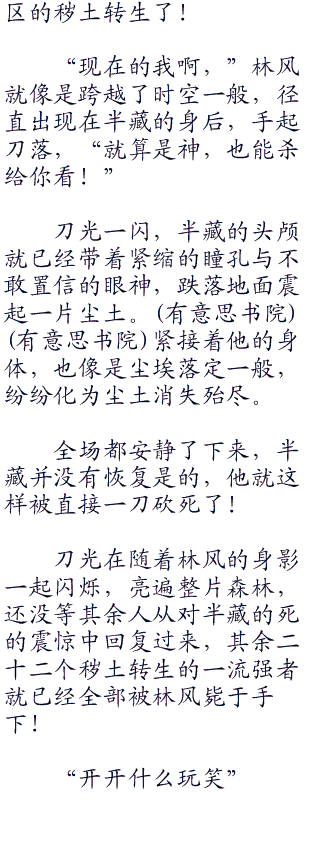 区的秽土转生了！
“现在的我啊，”林风
就像是跨越了时空一般，径
直出现在半藏的身后，手起
刀落，“就算是神，也能杀
给你看！”
刀光一闪，半藏的头颅
就已经带着紧缩的瞳孔与不
敢置信的眼神，跌落地面震
起一片尘土。(有意思书院)
(有意思书院)紧接着他的身
体，也像是尘埃落定一般，
纷纷化为尘土消失殆尽。
全场都安静了下来，半
藏并没有恢复是的，他就这
样被直接一刀砍死了！
刀光在随着林风的身影
一起闪烁，亮遍整片森林，
还没等其余人从对半藏的死
的震惊中回复过来，其余二
十二个秽土转生的一流强者
就已经全部被林风毙于手
下！
“开开什么玩笑”